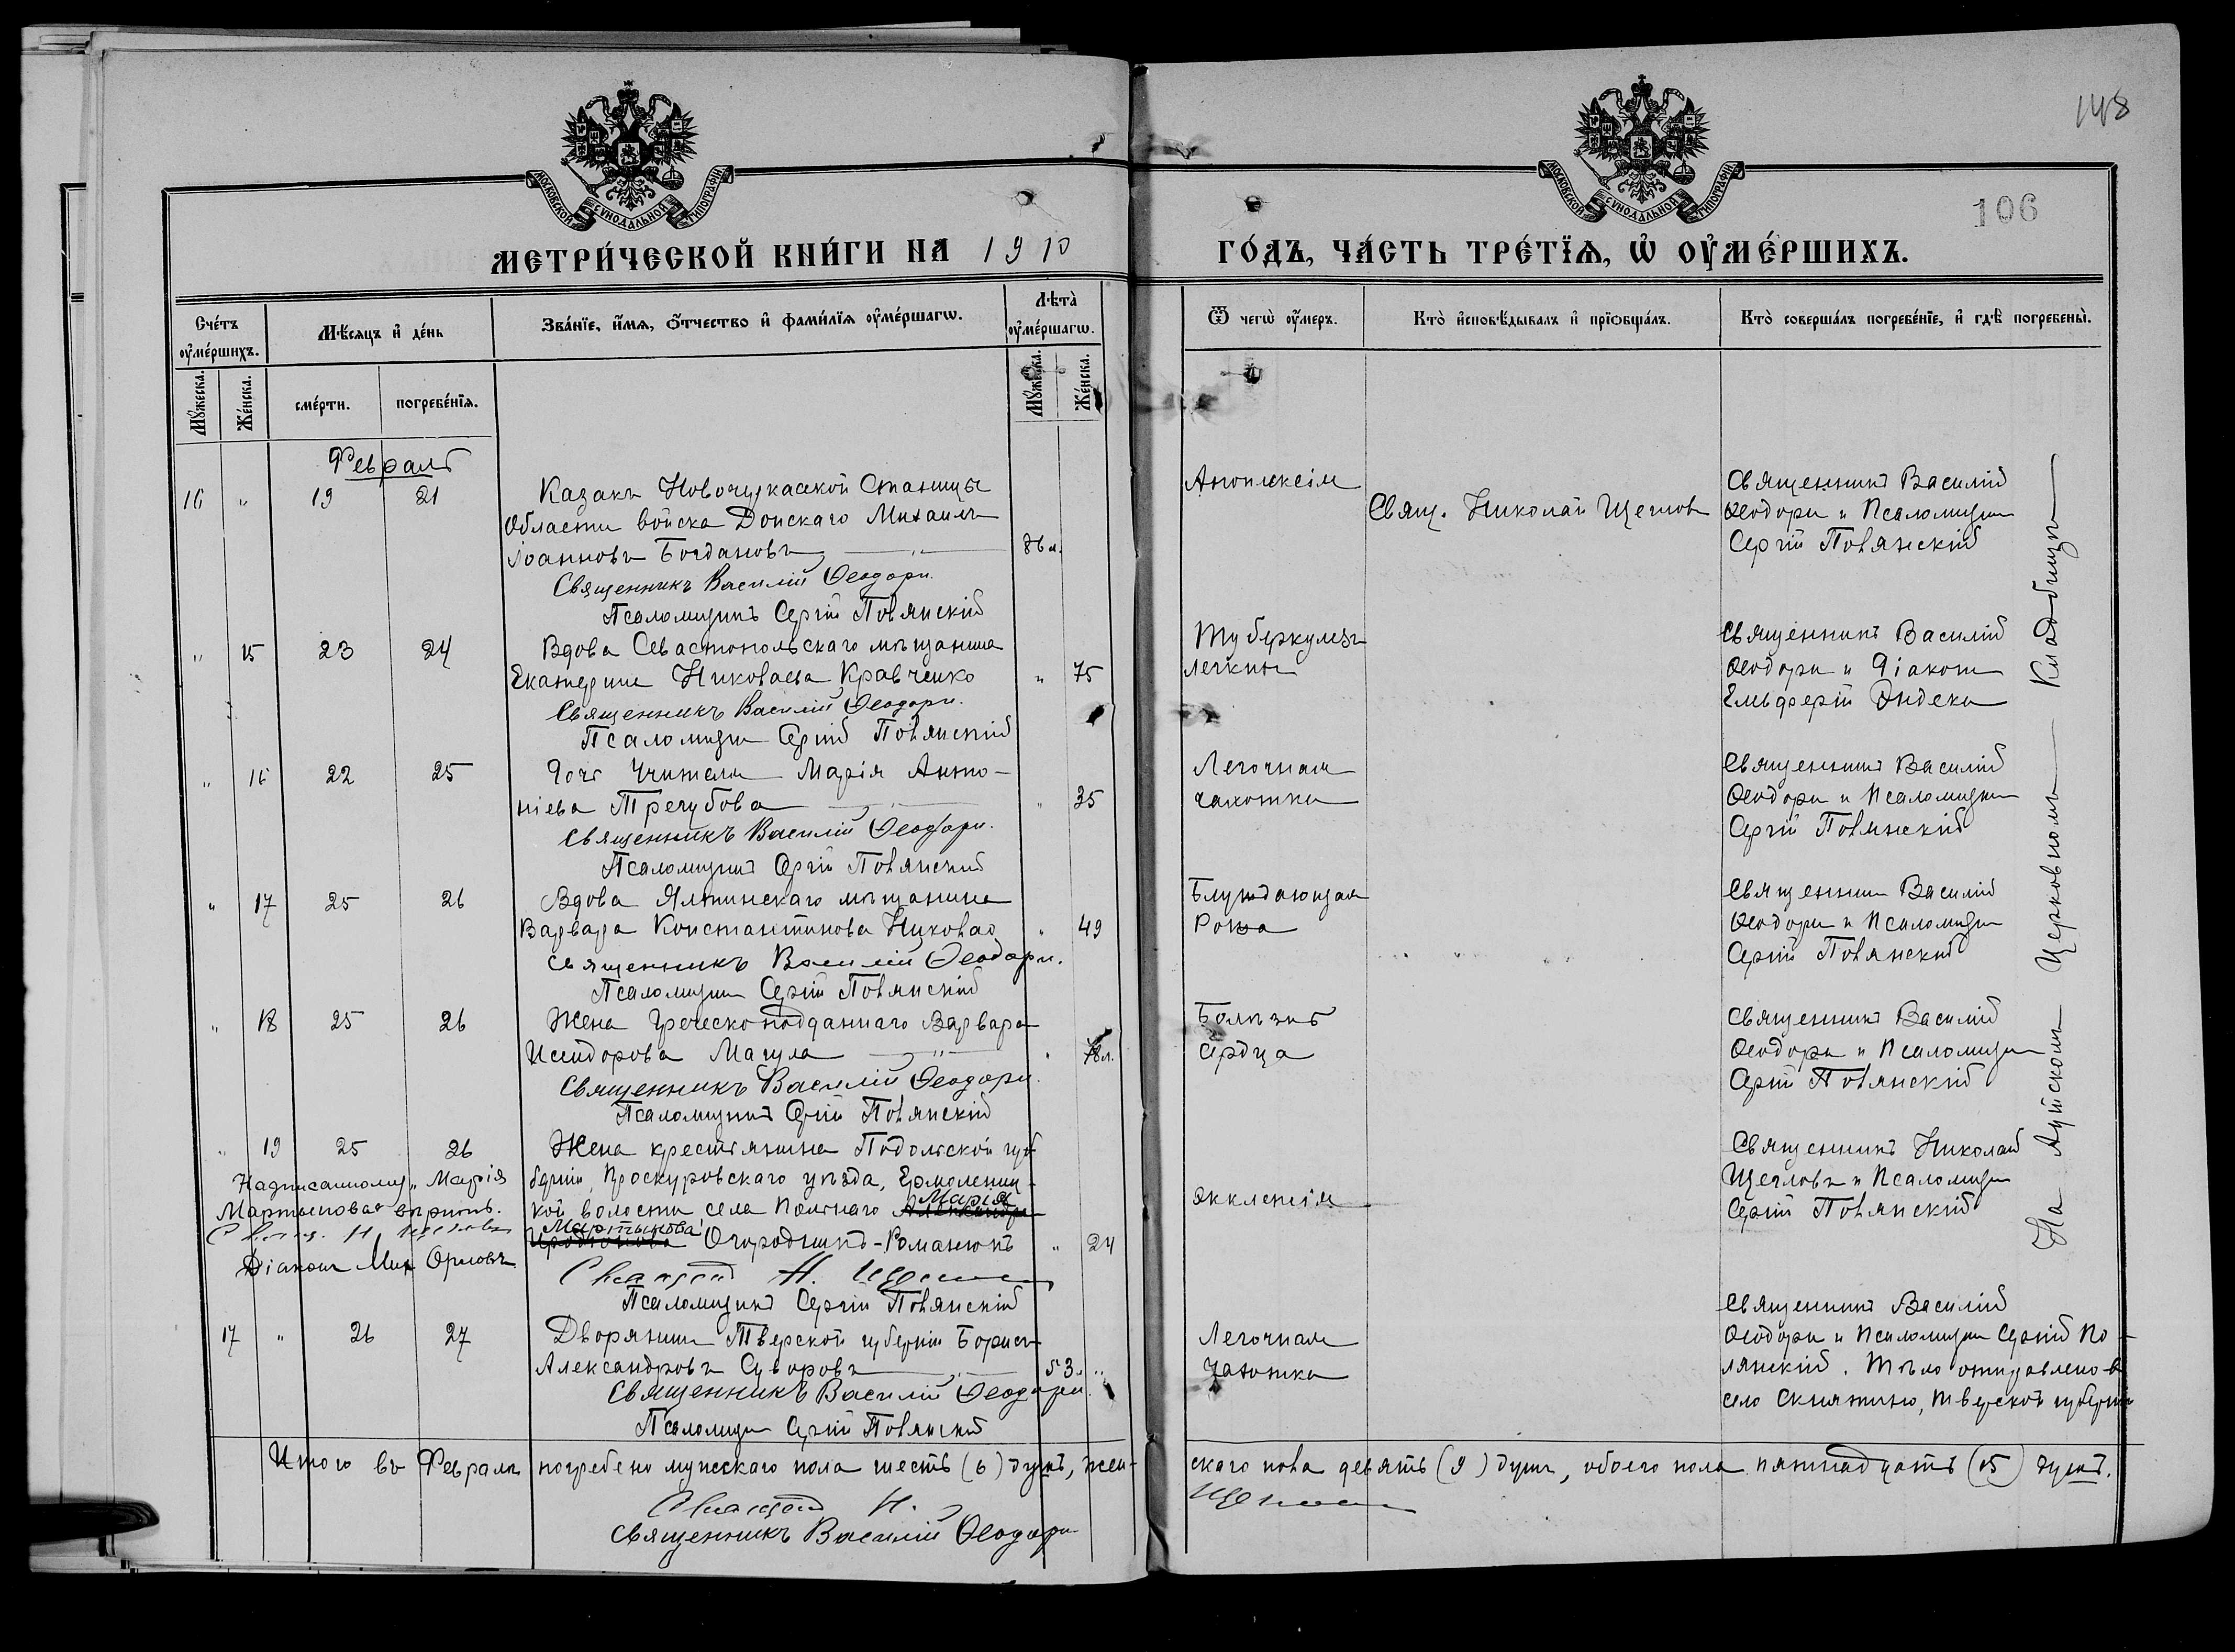 148
106
МОСКОВСКОЙ СѴНОДАЛЬНОЙ ТИПОГРАФІИ
МОСКОВСКОЙ СѴНОДАЛЬНОЙ ТИПОГРАФІИ
МЕТРИ́ЧЕСКОЙ КНИ́ГИ НА 1910 ГО́ДЪ, ЧА́СТЬ ТРЕ́ТЇѦ, Ѡ҆ ОУ҆МЕ́РШИХЪ.
Сче́тъ оу҆ме́ршихъ.
Мꙋ́жеска.
Же́нска.
Мѣ́сяцъ и҆ де́нь
сме́рти.
погребе́нїѧ.
Зва́нїе, и҆́мѧ, ѻ҆́тчество и҆ фами́лїѧ оу҆ме́ршагѡ.
Лѣта̀ оу҆ме́ршагѡ.
Мꙋ́жеска.
Же́нска.
Ѿ чегѡ̀ оу҆́меръ.
Кто̀ и҆сповѣ́дывалъ и҆ прїѡбща́лъ.
Кто̀ соверша́лъ погребе́нїе, и҆ гдѣ̀ погребены̀.
Февраль
16 " 19 21
Казакъ Новочеркасской Станицы
Области войска Донскаго Михаилъ
Іоанновъ Богдановъ — " — 86 л.
Священникъ Василій Ѳеодори.
Псаломщикъ Сергій Полянскій
Апоплексія
Свящ. Николай Щегловъ
Священникъ Василій
Ѳеодори и Псаломщикъ
Сергій Полянскій
" 15 23 24
Вдова Севастопольскаго мѣщанина
Екатерина Николаева Кравченко " 75
Священникъ Василій Ѳеодори.
Псаломщикъ Сергій Полянскій
Туберкулезъ
легкихъ
Священникъ Василій
Ѳеодори и Діаконъ
Ельферій Эндека
" 16 22 25
Дочь Учителя Марія Анто-
ніева Трегубова — " — " 35
Священникъ Василій Ѳеодори.
Псаломщикъ Сергій Полянский
Легочная
чахотка
Священникъ Василій
Ѳеодори и Псаломщикъ
Сергій Полянскій
" 17 25 26
Вдова Ялтинскаго мѣщанина
Варвара Константинова Николао " 49
Священникъ Василій Ѳеодори.
Псаломщикъ Сергій Полянскій
Блуждающая
Рожа
Священникъ Василій
Ѳеодори и Псаломщикъ
Сергій Полянскій
" 18 25 26
Жена Греческоподданнаго Варвара
Исидорова Магула — " — " 78 л.
Священникъ Василій Ѳеодори.
Псаломщикъ Сергій Полянскій
Болѣзнь
сердца
Священникъ Василій
Ѳеодори и Псаломщикъ
Сергій Полянскій
" 19 25 26
Жена крестьянина Подольской гу-
берніи, Проскуровскаго уѣзда, Ермолениц-
Марія
кой волости села Польнаго Александра
Мартынова
Огородникъ-Романюкъ " 24
Псаломщикъ Сергій Полянскій
Надписанному „Марія
Мартынова" вѣрить.
Свящ. Н. Щегловъ
Діаконъ Мих Орловъ
Эклемсія
Священникъ Николай
Щегловъ и Псаломщикъ
Сергій Полянскій
17 " 26 27
Дворянинъ Тверской губерніи Борисъ
Александровъ Суворовъ — " — 53 л "
Священникъ Василій Ѳеодори.
Псаломщикъ Сергій Полянский
Легочная
Чахотка
Священникъ Василій
Ѳеодори и Псаломщикъ Сергій По-
лянскій. Тѣло отправлено въ
село Скнятино, Тверской губерніи
На Аутскомъ Церковномъ Кладбищѣ
Итого въ Февралѣ погребено мужескаго пола шесть (6) душъ, жен-
скаго пола девять (9) душъ, обоего пола пятнадцать (15) душъ.
Священникъ Василій Ѳеодори